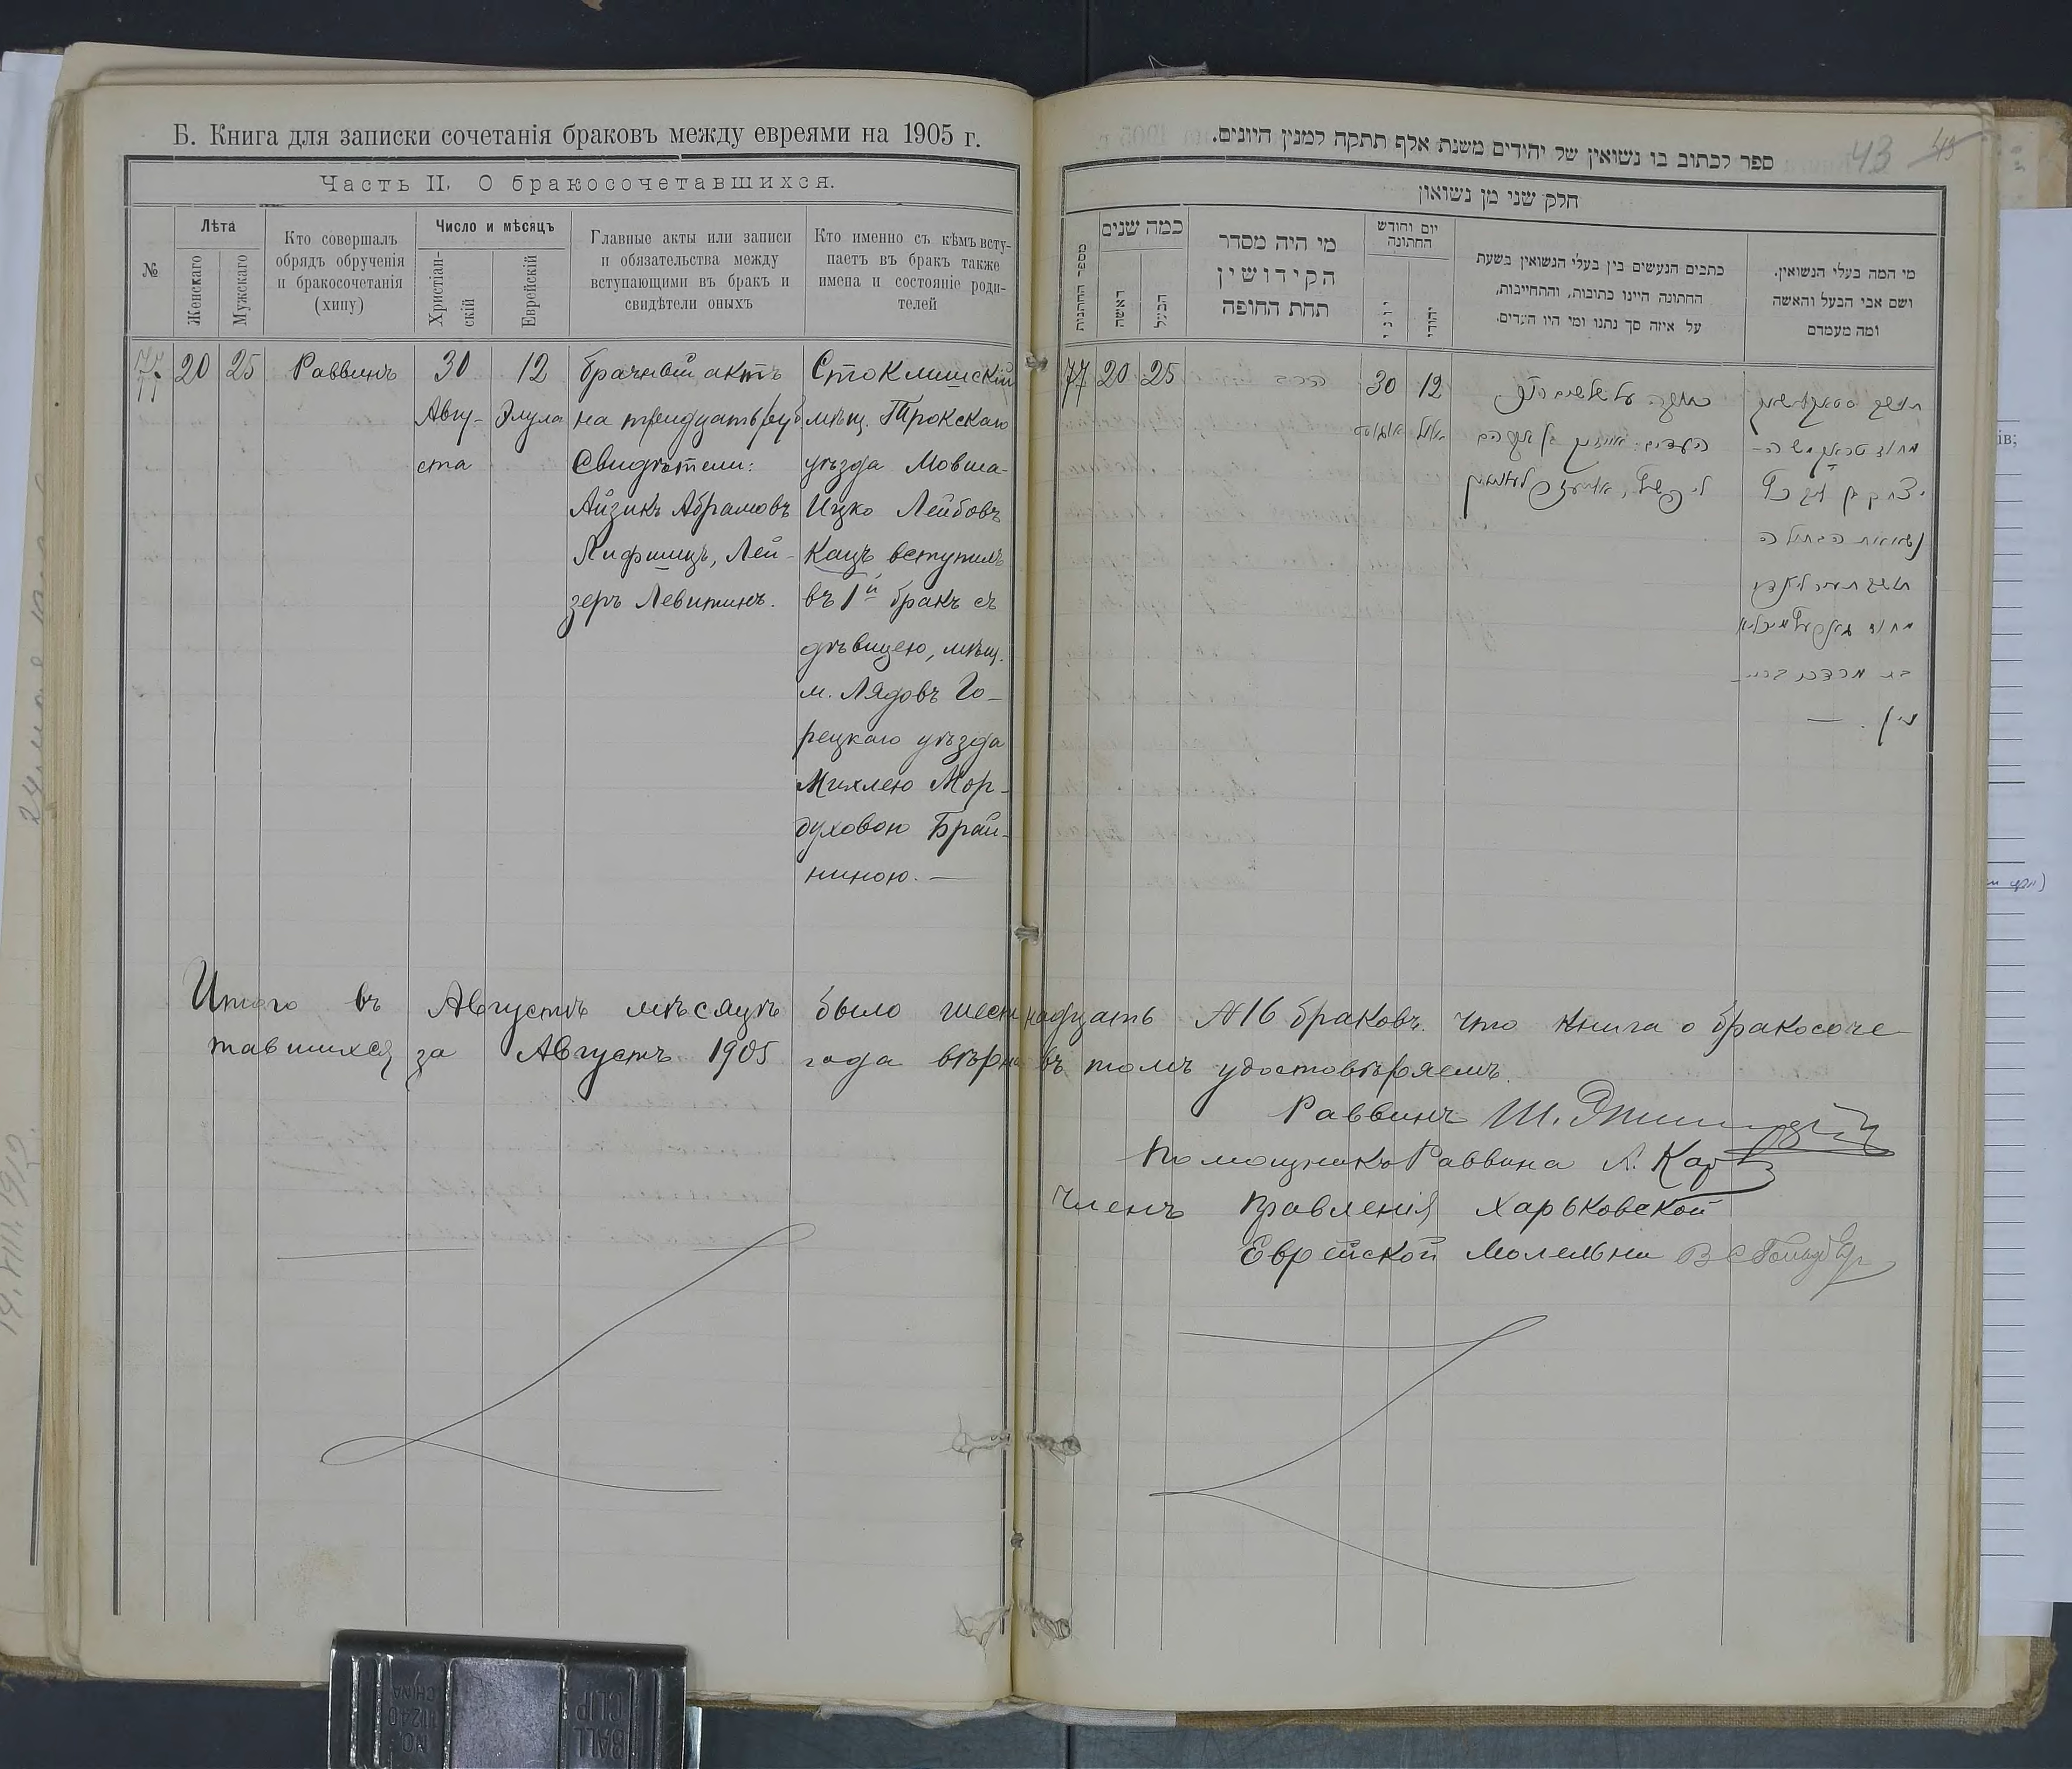 Б. Книга для записки сочетанія браковъ между евреями на 1905 г.
Часть II. О бракосочетавшихся.
№
Лѣта
Женскаго
Мужскаго
Кто совершалъ
обрядъ обрученія
и бракосочетанія
(хипу)
Число и мѣсяцъ
Христіан-
скій
Еврейскій
Главные акты или записи
и обязательства между
вступающими въ бракъ и
свидѣтели оныхъ
Кто именно съ кѣмъ всту-
паетъ въ бракъ также
имена и состояніе роди-
телей
77
20
25
Раввинъ
30
Авгу-
ста
12
Элула
брачный актъ
на тридцать руб.
Свидѣтели:
Айзикъ Абрамовъ
Лифшицъ, Лей-
зеръ Левитинъ.
Стоклишскій
мѣщ. Трокскаго
уѣзда Мовша-
Ицко Лейбовъ
Кацъ вступилъ
въ 1й бракъ съ
дѣвицею, мѣщ.
м. Лядовъ Го-
рецкаго уѣзда
Михлею Мор-
духовою Брай-
ниною. —
43
ספר לכתוב בו נשואין של יהידים משנת אלף תתקה למנין היונים.
חלק שני מן נשואון
מספר החתנות
כמה שנים
האשה
הבעל
מי היה מסדר
הקידושין
תחת החופה
יום וחודש
החתונה
יוני
יהודי
כתבים הנעשים בין בעלי הנשואין בשעת
החתונה היינו כתובות, והתחייבות,
על איזה סך נתנו ומי היו העדים.
מי המה בעלי הנשואין.
ושם אבי הבעל והאשה
ומה מעמדם
77
20
25
הרב
30
אוגוסט
12
אלול
כתובה על שלשים
העדים: אייזיק בן אברהם
ליפשיץ,
תושב
מחוז טראק משה-
יצחק בן ליב כץ
נשואות הבתולה
תושב
מחוז
בת מרדכי בריי-
נין. —
Итого въ Августѣ мѣсяцѣ было шестнадцать №16 браковъ. Что книга о бракосоче
тавшихся за Августъ 1905 года вѣрна въ томъ удостовѣряемъ.
Раввинъ Ш.
Помощникъ Раввина А. Кац
Членъ Правленія Харьковской
Еврейской Молельни